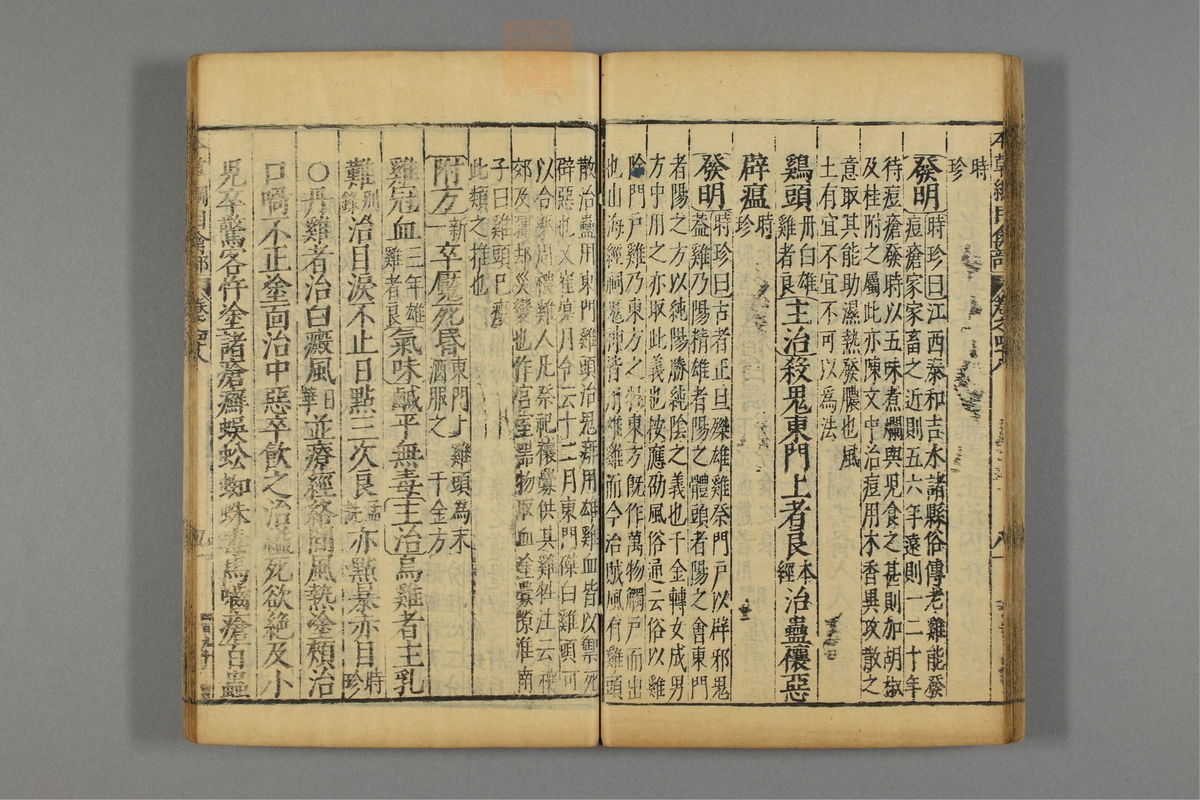 時
珍
發明
時珍曰江西泰和吉水諸縣俗傳老雞能發
痘瘡家家畜之近則五六年遠則一二十年
待痘瘡發時以五味煮爛與兒食之甚則加胡椒
及桂附之屬此亦陳文中治痘用木香異攻散之
意取其能助濕熱發膿也風
土有宜不宜不可以爲法
鷄頭
丹白雄
雞者良
主治殺鬼東門上者良
本
經
治蠱禳惡
辟瘟
時
珍
發明
時珍曰古者正旦磔雄雞祭門戶以辟邪鬼
葢雞乃陽精雄者陽之體頭者陽之會東門
者陽之方以純陽勝純陰之義也千金轉女成男
方中用之亦取此義也按應劭風俗通云俗以雞
門戶雞乃東方之牲東方既作萬物觸戶而出
也山海經祠鬼神皆用雄雞而今治賊風有雞頭
散治蠱用東門雞頭治鬼痱用雄雞血皆以禦死
辟惡也又崔寔月令云十二月東門磔白雞頭可
以合藥周禮雞人凡祭祀禳釁供其雞牲注云禳
郊及疆却災變也作宮室器物取血塗釁隙淮南
子曰雞頭已瘻
此類之推也
附方
新
一
卒魘死昬
東門上雞頭爲末
酒服之 千金方
雞冠血
三年雄
雞者良
氣味鹹平無毒主治烏雞者主乳
難
別
錄
治目淚不止日點三次良
孟
詵
亦點暴赤目
時
珍
○丹雞者治白癜風
日
華
並療經絡間風熱塗頰治
口喎不正塗面治中惡卒飲之治縊死欲絕及小
兒卒驚客忤塗諸瘡癬蜈蚣蜘蛛毒馬嚙瘡百蟲